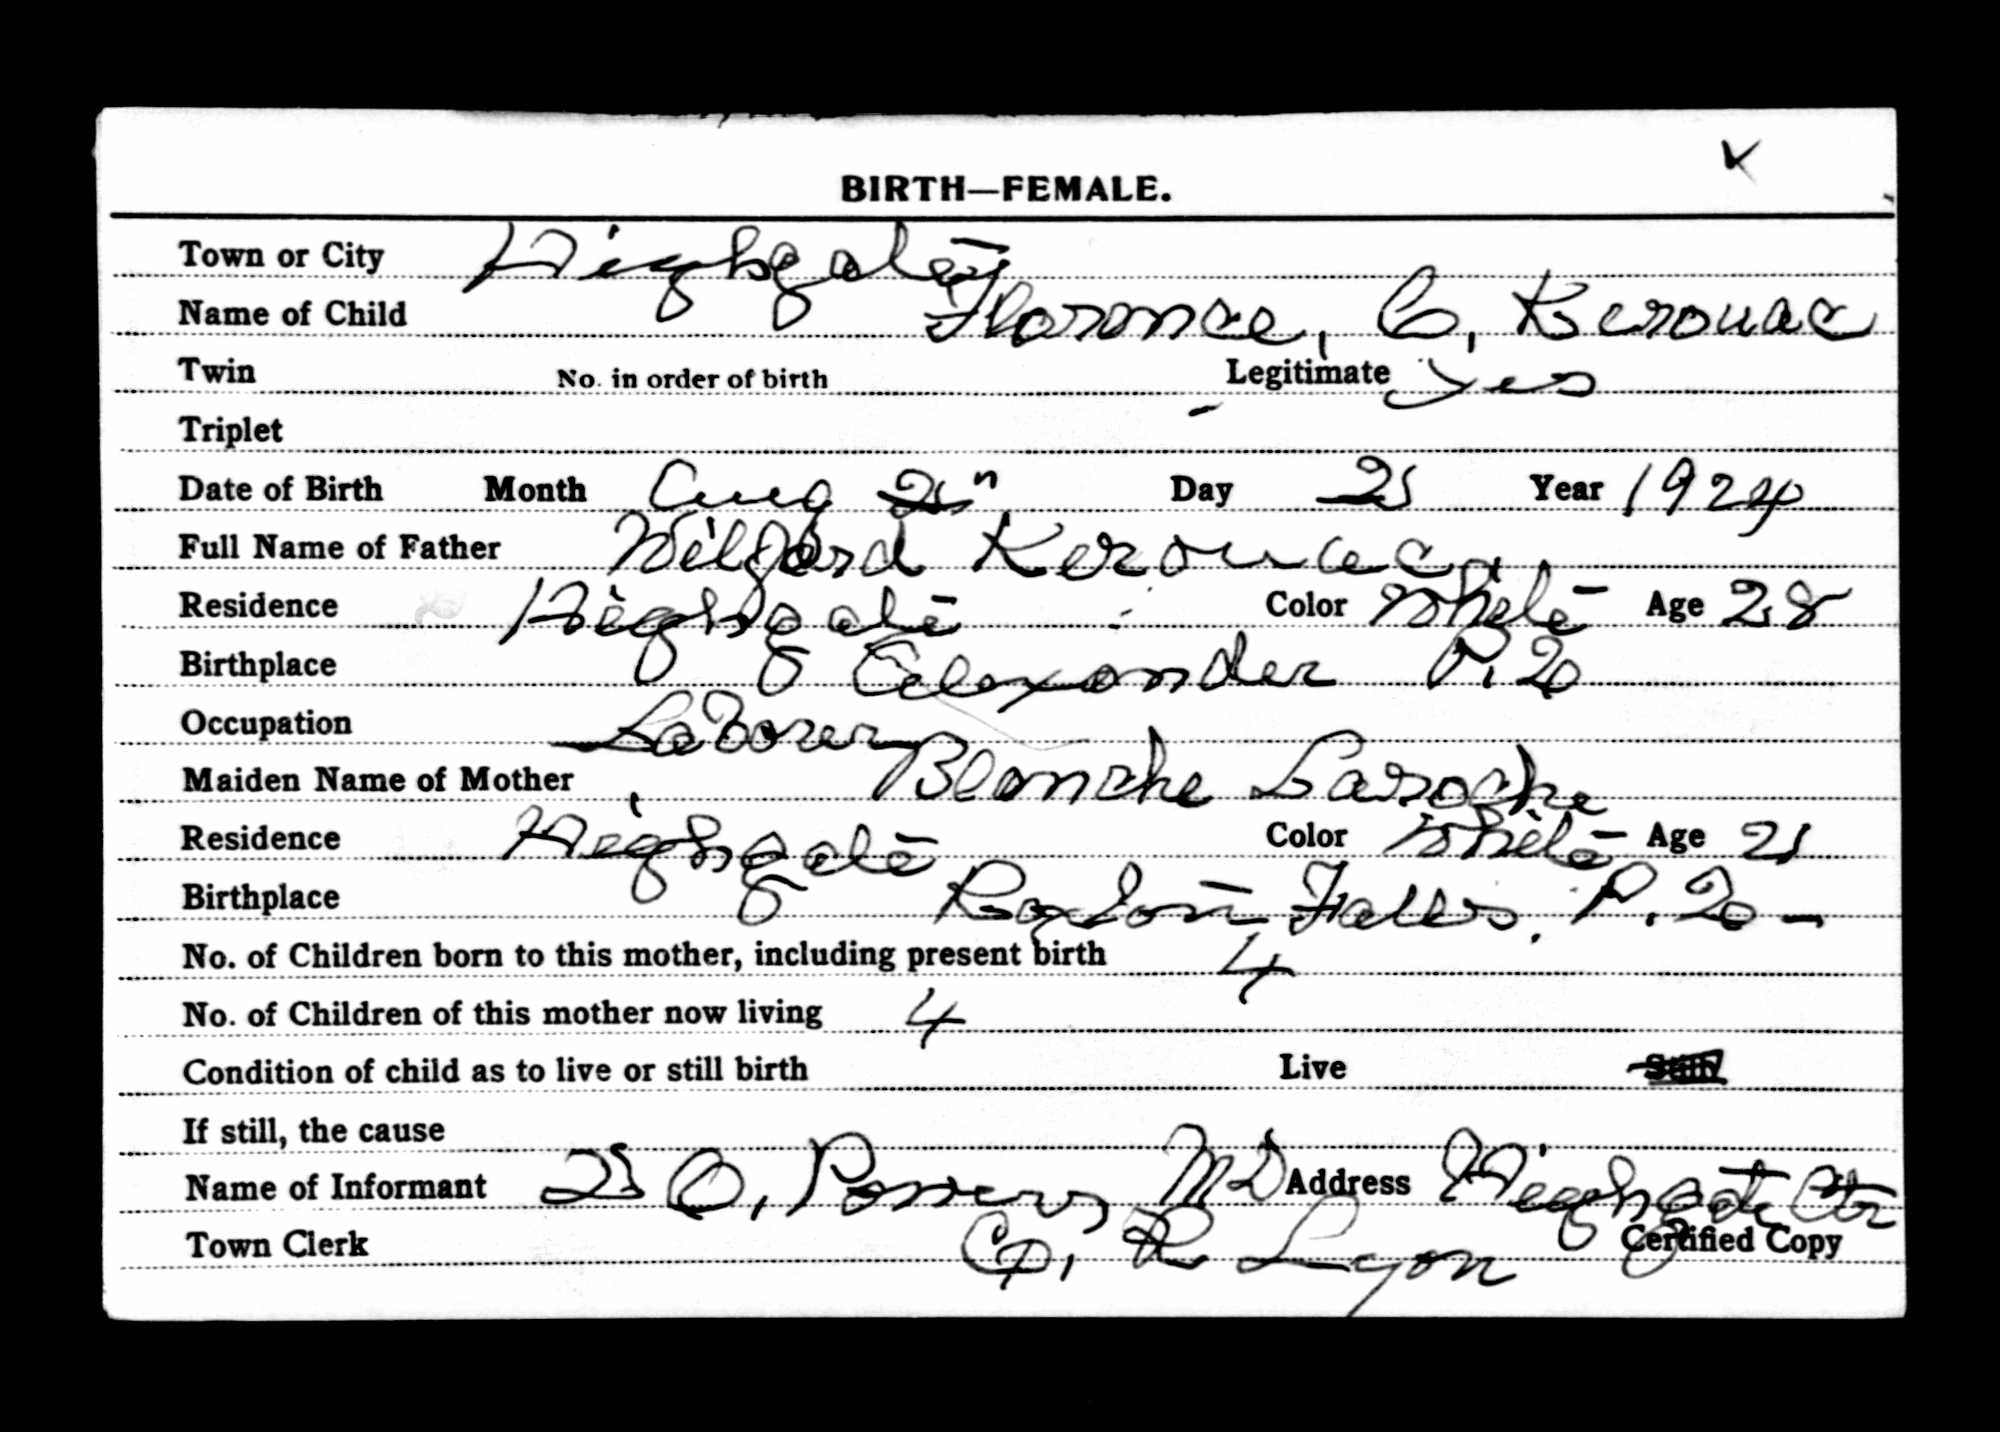 BIRTH—FEMALE.
Town or City Highgate
Name of Child Florence, C, Kerouac
Twin No. in order of birth Legitimate yes
Triplet
Date of Birth Month Aug Day 21 Year 1924
Full Name of Father Wilford Kerouac
Residence Highgate Color White Age 28
Birthplace Alexander P. Q
Occupation Laborer
Maiden Name of Mother Blanche Laroche
Residence Highgate Color White Age 21
Birthplace Roxton Falls. P. Q -
No. of Children born to this mother, including present birth 4
No. of Children of this mother now living 4
Condition of child as to live or still birth Live Still
If still, the cause
Name of Informant O, Powers MD Address Highgate Ctr
Town Clerk R Lyon Certified Copy